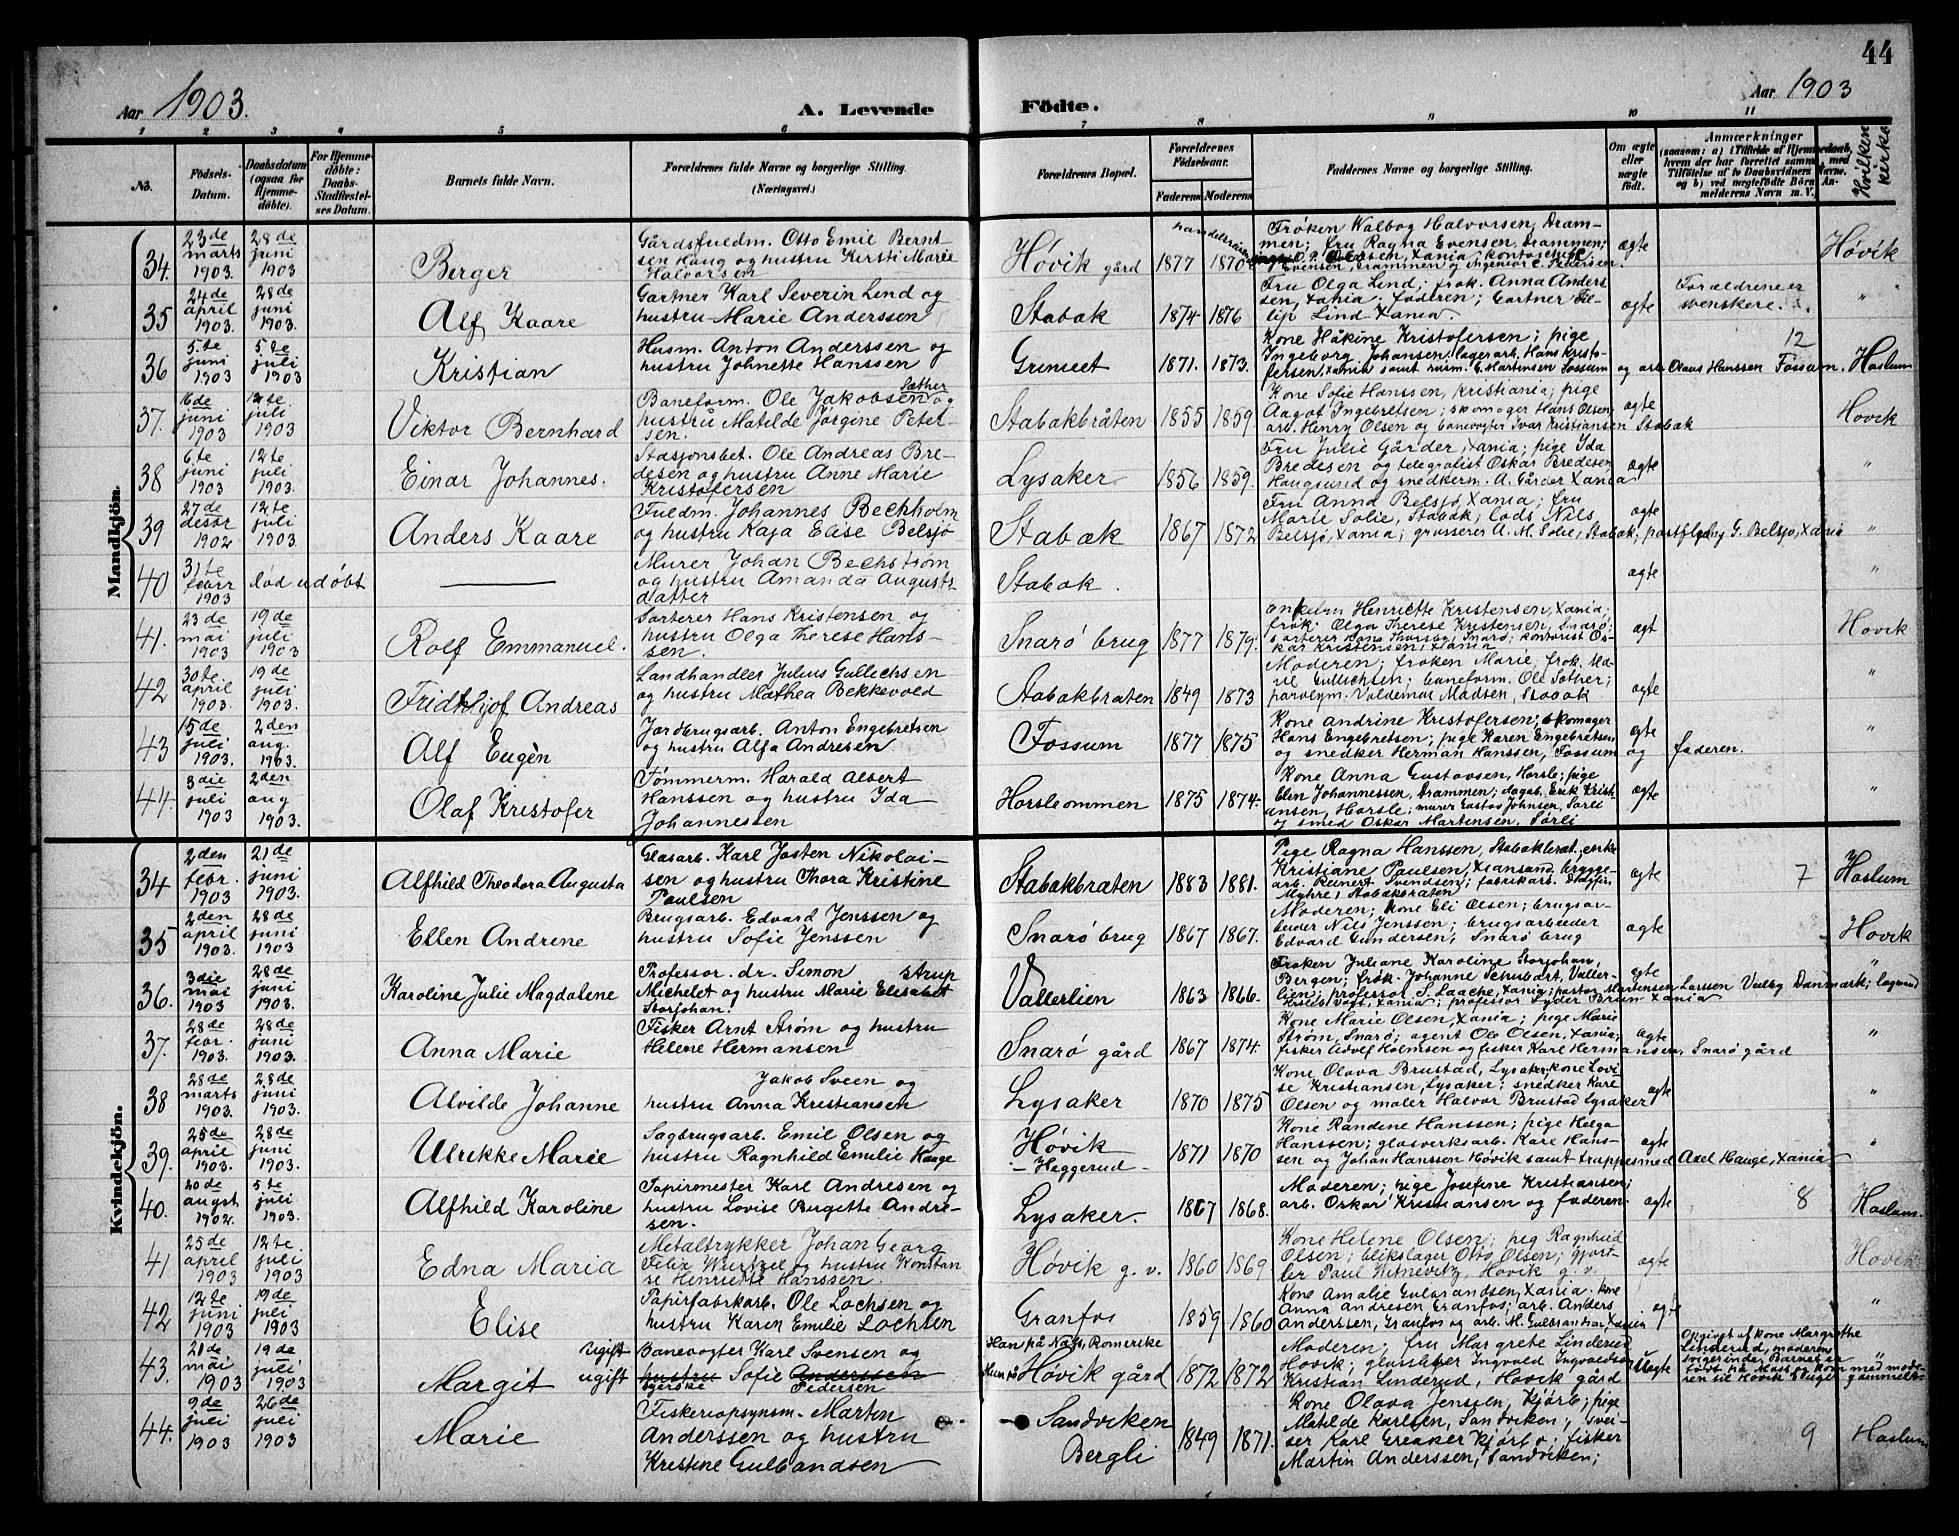 44
Aar 1903.
A. Levende
Födte.
Aar 1903
1 2 3 4 5 6 7 8 9 10 11
No.
Födsels-Datum.
Daabsdatum (ogsaa for Hjemme-döbte).
For Hjemme-döbte: Daabs-Stadfæstel-ses Datum.
Barnets fulde Navn.
Forældrenes fulde Navne og borgerlige Stilling. (Næringsvei.)
Forældrenes Bopæl.
Forældrenes Födselsaar.
Faderens Moderens
Faddernes Navne og borgerlige Stilling.
Om ægte eller uægte födt.
Anmærkninger
(saasom: a) i Tilfælde af Hjemmedaab, hvem der har forrettet samme, med Tilföielse af to Daabsvidners Navne. og b) ved uægtefödte Börn An-melderens Navn m. V.
Hvilken kirke
Mandkjön.
34. 23de marts 1903. 28de juni 1903
Berger
Gårdsfuldm. Otto Emil Bernt-
sen Haug og hustru Kirsti Marie
Halvorsen
Høvik gård 1877 1870
Frøken Walbog Halvorsen, Dram-
men; fru Ragna Evensen, Drammen;
Evensen, Drammen og Ingeniør C. Pedersen.
ægte
Høvik
35 24de april 1903. 28de juni 1903.
Alf Kaare
Gartner Karl Severin Lind og
hustru Marie Anderssen
Stabæk 1874 1876
Fru Olga Lind; frøk. Anna Anders-
sen, Xania. faderen; Gartner Fil-
lip Lind Xania.
ægte
Forældrene er
svenskere.
"
36 5.te juni 1903 5te juli 1903
Kristian
Husm. Anton Anderssen og
hustru Johnette Hanssen
Grineet 1871. 1873.
Kone Håkine Kristofersen; pige
Ingeborg Johansen; lagerarb. Hans Kristo-
fersen, Xania samt husm. E. Martinsen Fossum og arb. Olaus Hanssen Fossum.
12
Haslum
37. 16de juni 1903 12te juli 1903
Viktor Bernhard
Baneform. Ole Jakobsen Sæther og
hustru Matilde Jørgine Peter-
sen.
Stabækbråten 1855 1859.
Kone Sofie Hanssen, Kristiania; pige
Aagot Ingebretsen; skomager Hans Olsen,
arb. Henry Olsen og banevogter Ivar Kristiansen Stabæk
ægte
Høvik
38 6te juni 1903 12te juli 1903.
Einar Johannes.
Stasjonsbet. Ole Andreas Bre-
desen og hustru Anne Marie
Kristofersen
Lysaker 1856 1859.
Fru Julie Gårder, Xania; pige Ida
Bredesen og telegrafist Oskar Bredesen
Haugsund og snedkerm. A. Gårder Xania
ægte
"
39 27de desbr 1902 12te juli 1903.
Anders Kaare
Fuldm. Johannes Bechholm
og hustru Kaja Elise Belsjø
Stabæk 1867 1872
Fru Anna Belsjø, Xania; fru
Marie Solie, Stabæk; lods Nils
Belsjø, Xania; grosserer A. M. Solie, Stabæk, G. Belsjø, Xania
ægte
"
40 31te 1903 død udøbt
Murer Johan Bechstrøm
og hustru Amanda Augusts-
datter
Stabæk.
ægte
"
41. 23de mai 1903 19de juli 1903
Rolf Emmanuel.
Sorterer Hans Kristensen og
hustru Olga Therese Hans-
sen.
Snarø brug 1877 1879.
Enkefru Henriette Kristensen, Xania;
frøk. Olga Therese Kristensen, Snarø;
sorterer Hans Thorsby, Snarø; kontorist Os-
kar Kristensen, Xania
ægt
Høvik
42 30te april 1903. 19de juli 1903.
Fridthjof Andreas
Landhandler Julius Gullichsen
og hustru Mathea Bekkevold
Stabækbråten 1849 1873
Moderen; frøken Marie, frøk. Ma-
ril Gullichsen; baneform. Ole Sæther;
Valdemar Madsen, Stabæk
ægte
"
43 15de juli 1903. 2den aug. 1903.
Alf Eugèn
Jordbrugsarb. Anton Engebretsen
og hustru Alfa Andresen
Fossum 1877 1875
Kone Andrine Kristofersen; skomager
Hans Engebretsen; pige Karen Engebretsen
og snedker Herman Hanssen, Fossum og faderen.
ægte
"
44. 3die juli 1903 2den aug 1903.
Olaf Kristofer
Tømmerm. Harald Albert
Hanssen og hustru Ida
Johannessen
Horsleommen 1875 1874.
Kone Anna Gustavsen, Horsle; pige
Elen Johannessen, Drammen; dagab. Erik Krist-
iansen, Horsle; murer Gustav Johnsen, Sørli
og smed Oskar Martensen, Sørli
ægte
"
Kvindekjön.
34 2den febr. 1903 21de juni 1903.
Alfhild Theodora Augusta
Glasarb. Karl Josten Nikolai-
sen og hustru Thora Kristine
Paulsen
Stabækbråten 1883 1881.
Pige Ragna Hanssen, Stabækbråt.; enke
Kristiane Paulsen, Xiansand, brygge-
arb. Reinert Svendsen; fabrikarb. Dagfin
Myhre, Stabækbråten
ægte
7
Haslum
35 2den april 1903. 28de juni 1903
Ellen Andrine
Brugsarb. Edvard Jenssen og
hustru Sofie Jenssen
Snarø brug 1867 1867.
Moderen; kone Eli Olsen; brugsar-
beider Nils Jenssen; brugsarbeider
Edvard Gundersen, Snarø brug
ægte
Høvik
36. 3die mai 1903 28de juni 1903.
Karoline Julie Magdalene
Professor dr. Simon Strup
Michelet og hustru Marie Elisabet
Storjohan.
Vallerlien 1863 1866.
Frøken Juliane Karoline Storjohan,
Bergen; frøk. Johanne Schubart, Valler-
lien; professor S. Laache, Xania; pastor Mortensen Larssen Veilby Danmark; lagmand
Vogt, Xania; professor Lyder Brun Xania
ægte
"
37. 28de febr. 1903. 28de juni 1903.
Anna Marie
Fisker Arnt Strøm og hustru
Helene Hermansen
Snarø gård 1867 1874.
Kone Marie Olsen, Xania; pige Marie
Strøm, Snarø; agent Ole Olsen, Xania;
fisker Adolf Holmsen og fisker Karl Hermansen, Snarø gård
ægte
"
38 28de marts 1903. 28de juni 1903.
Alvilde Johanne
Jakob Sveen og
hustru Anna Kristiansen
Lysaker 1870 1875
Kone Olava Brustad, Lysaker; kone Lovi-
se Kristiansen, Lysaker; snedker Kare
Olsen og maler Halvor Brustad Lysaker
ægte
"
39. 25de april 1903. 28de juni 1903.
Ulrikke Marie
Sagbrugsarb. Emil Olsen og
hustru Ragnhild Emilie Hauge
Høvik
- Heggerud - 1871 1870
Kone Randine Hanssen; pige Helga
Hanssen; glasverksarb. Kare Hans-
sen og Johan Hanssen Høvik samt trappesmed Axel Hauge, Xania
ægte
"
40. 20de augst 1902. 5te juli 1903.
Alfhild Karoline
Papirmester Karl Andresen og
hustru Lovise Birgitte Andre-
sen.
Lysaker. 1867 1868.
Moderen; pige Josefine Kristiansen;
arb. Oskar Kristiansen og faderen.
ægte
8
Haslum.
41 25de april 1903 12te juli 1903
Edna Maria
Metaltrykker Johan Georg
Felix Wurtzel og hustru Konstan-
se Henriette Hanssen.
Høvik g. v. 1860 1869
Kone Helene Olsen; pig Ragnhild
Olsen; blikslager Otto Olsen; gjørt-
ler Paul Witnevitz, Høvik g. v.
ægte
Høvik
42 12te juni 1903 19de juli 1903
Elise
Papirfabrkarb. Ole Lochsen og
hustru Karin Emilie Lochsen
Granfos 1859 1860
Kone Amalie Gulbrandsen, Xania. kone
Anna Andresen Granfos; arb. Anders
Anderssen, Granfos og arb. M. Gulbrandsen, Xania
ægte
"
43. 20de mai 1903 19de juli 1903
Margit
Ugift Banevogter Karl Svensen og
ugift hustru Sofie Anderssen
Pedersen
Han på Næs, Romerike
Hun på Høvik gård 1872 1872
Moderen; fru Margrete Linderud
Høvik; glassliber Ingvald Ingvaldsen
Kristian Linderud, Høvik gård
Uægte
Opgivet af kone Margrethe
Linderud, moderens
svigerinde. Barnet er
født på Moss og kom med mode-
ren til Høvik
"
44. 9de juli 1903 26de juli 1903
Marie
Martin
Anderssen og hustru
Kristine Gulbandsen
Sandviken
Bergli 1849 1871.
Kone Olava Jenssen, Kjørb; pige
Matilde Karlsen, Sandviken; svei-
ser Karl Greaker Kjørbo; fisker
Martin Anderssen, Sandviken;
9
Haslum